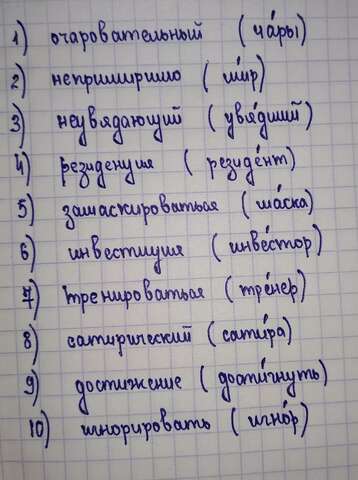 1) очаровательный (ча́ры)
2) непримиримо (ми́р)
3) неувядающий (увя́дший)
4) резиденция (резиде́нт)
5) замаскироваться (ма́ска)
6) инвестиция (инве́стор)
7) тренироваться (тре́нер)
8) сатирический (сати́ра)
9) достижение (дости́гнуть)
10) игнорировать (игно́р)